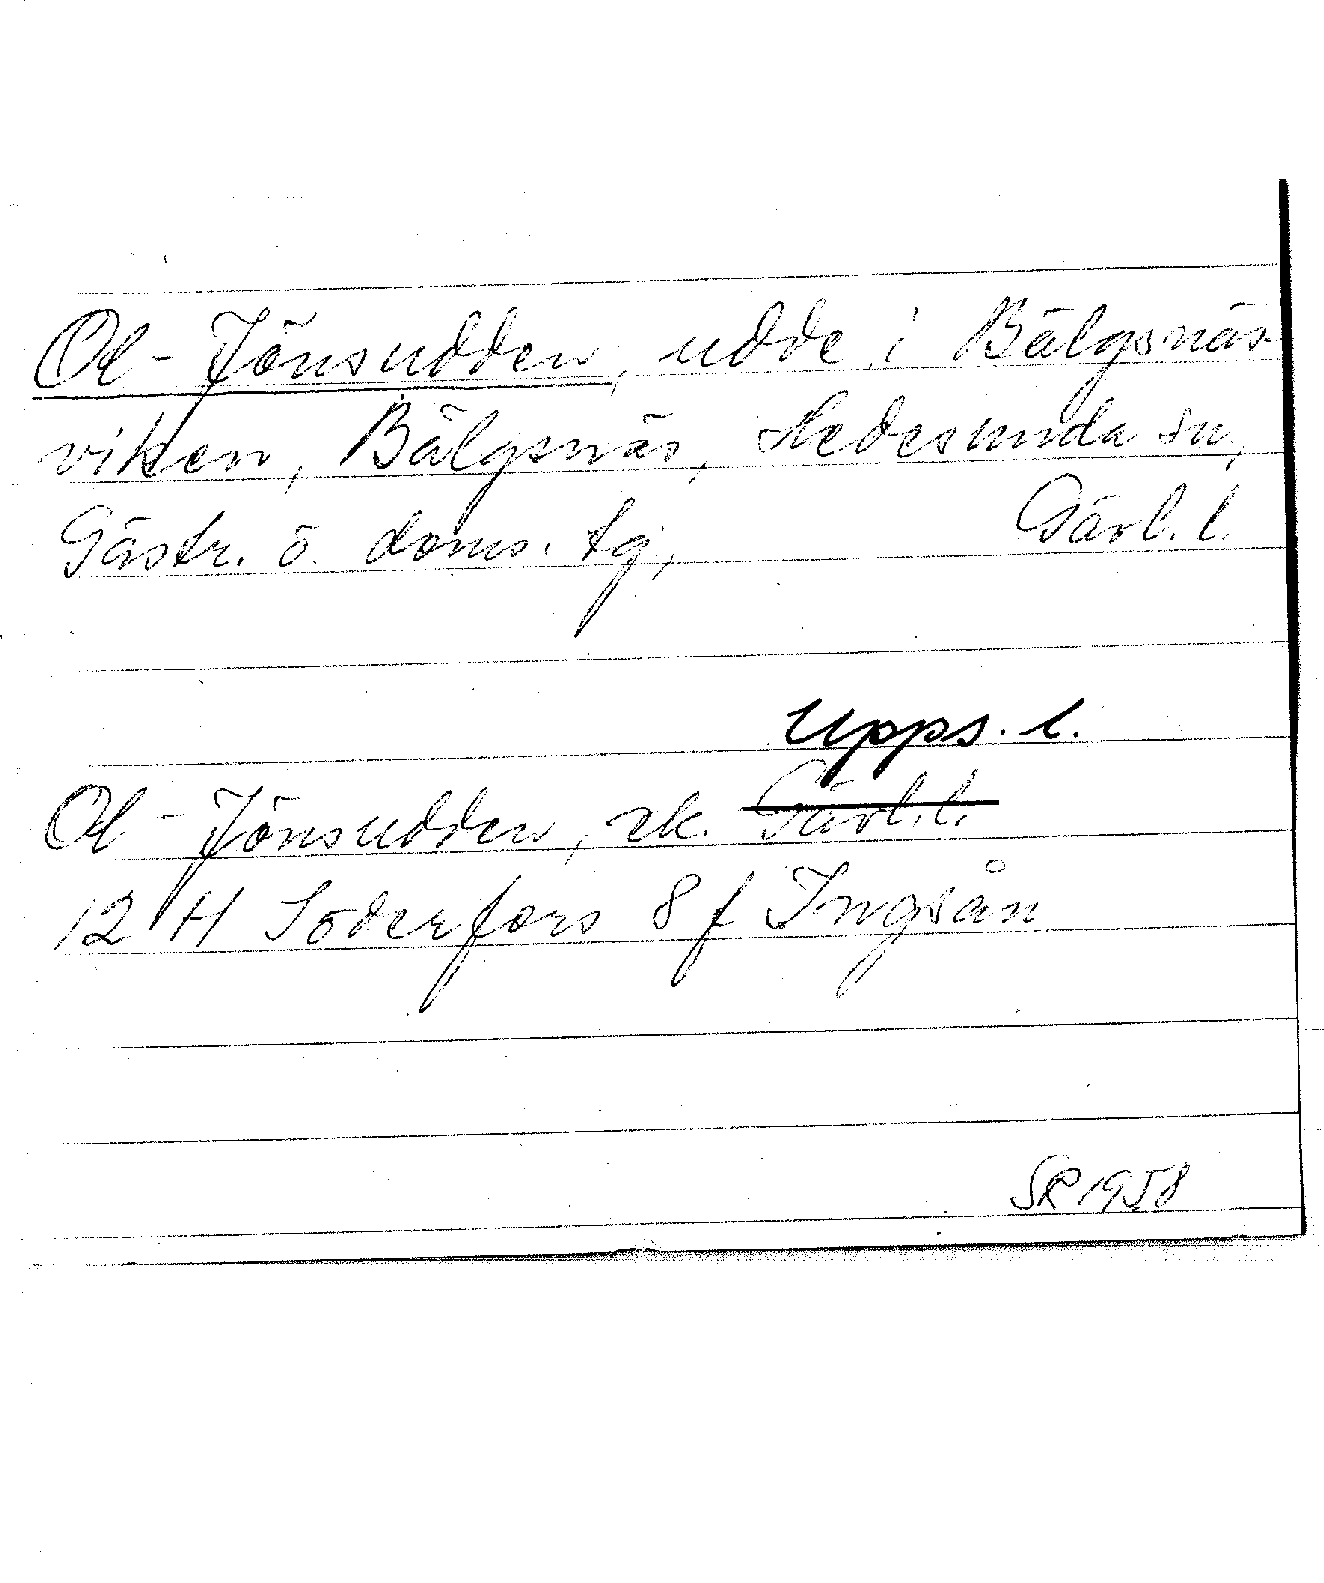 Ol-Jönsudden, udde i Bälgsnäs-
viken, Bälgsnäs, Hedesunda sn,
Gästr. ö. doms. tg, Gävl. l.
Upps. l.
Ol-Jönsudden, ek. Gävl. l.
12 H Söderfors 8 f Ingsån
SR 1958